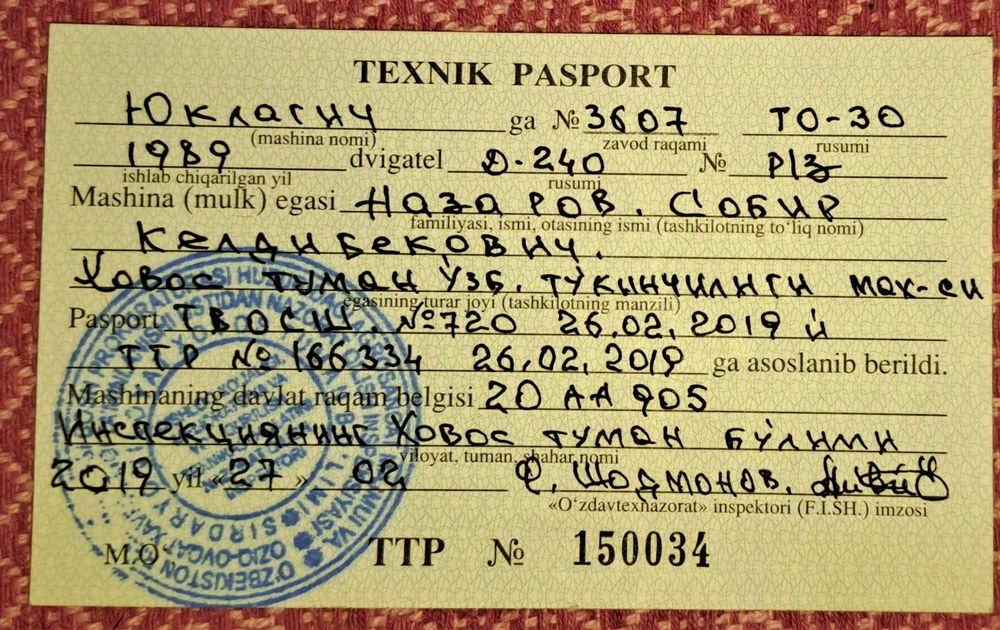 TEXNIK PASPORT
Юклагич ga №3607 ТО-30
(mashina nomi) zavod raqami rusumi
1989 dvigatel Д-240 № Р/З
ishlab chiqarilgan yil rusumi
Mashina (mulk) egasi Назаров. Собир
familiyasi, ismi, otasining ismi (tashkilotning to‘liq nomi)
Келдибекович.
Ховос туман Ўзб. тўкинчилиги мах-си
egasining turar joyi (tashkilotning manzili)
Pasport ТВОСШ. №720 26.02.2019 й
ТТР № 166334 26.02.2019 ga asoslanib berildi.
Mashinaning davlat raqam belgisi 20 АА 905
Инспекциянинг Ховос туман бўлими
viloyat, tuman, shahar nomi
2019 yil «27» 02 Шодмонов.
«O‘zdavtexnazorat» inspektori (F.I.SH.) imzosi
M.O‘ TTP № 150034
SIRDARY
O‘ZBEKISTON
OZIQ-OVQAT XAVF